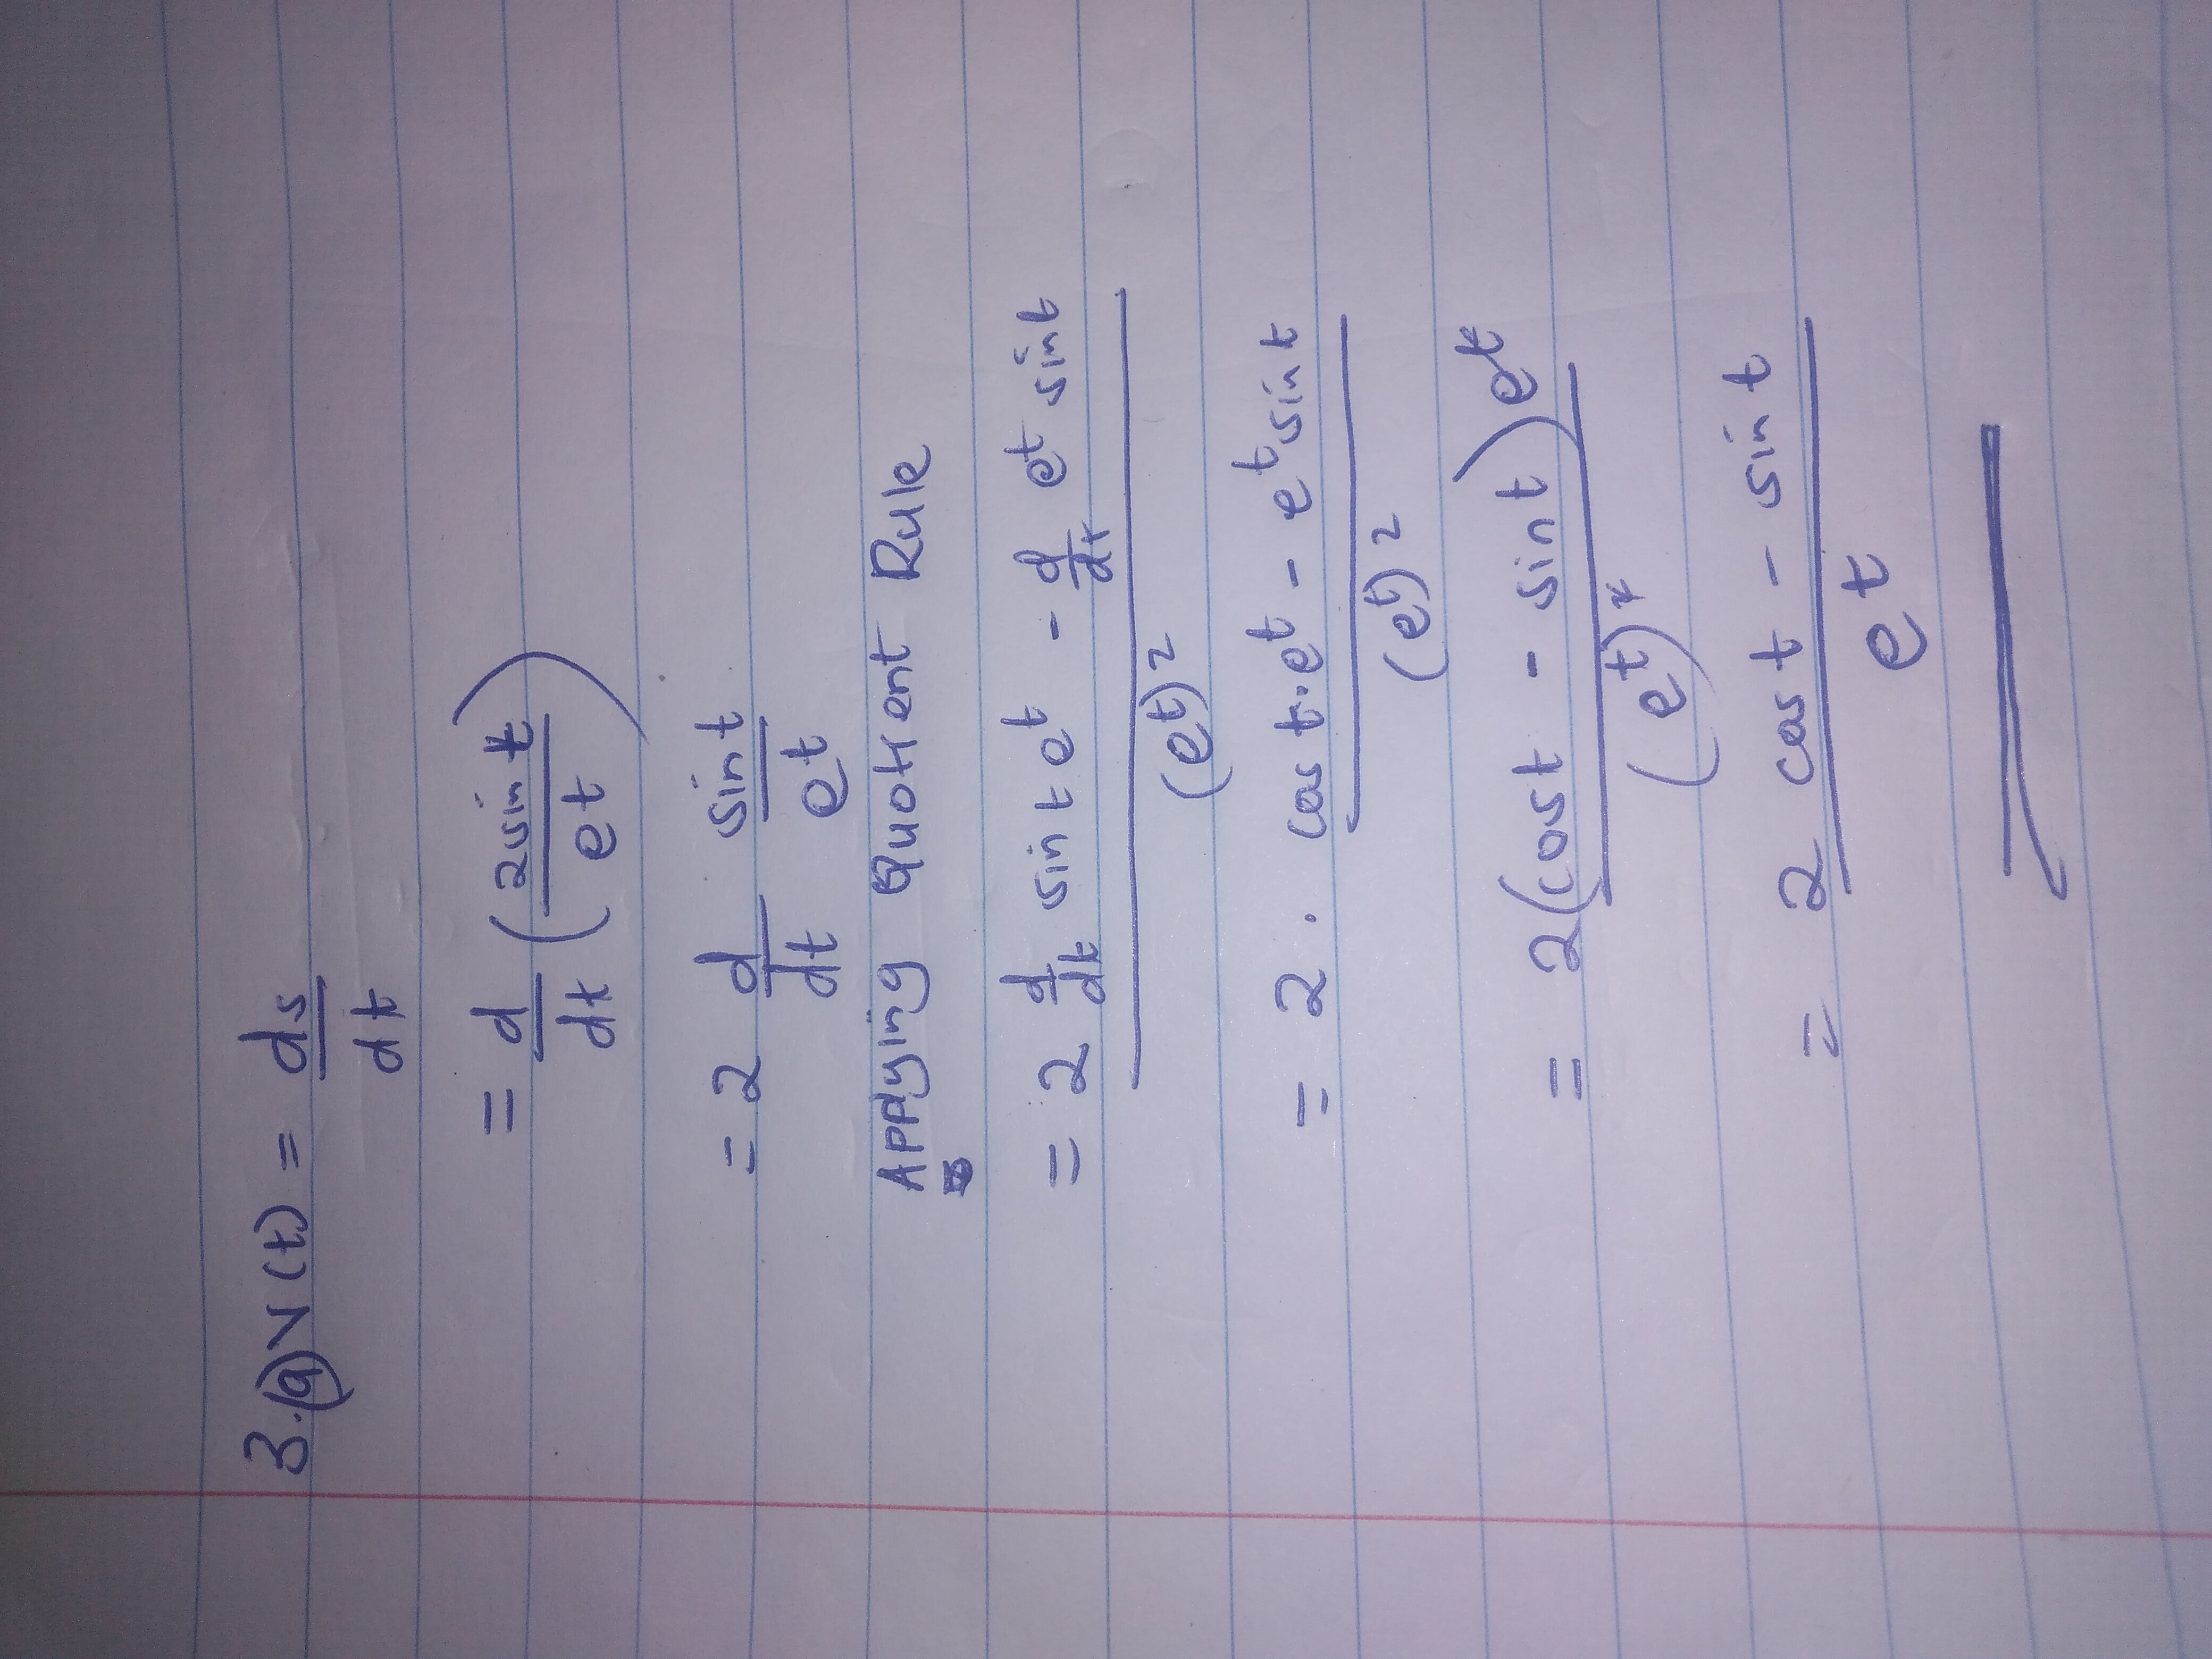 3.(a) V(t) = ds/dt
= d/dt (2sint/et)
= 2 d/dt sint/et
Applying Quotient Rule
= 2 d/dt sint et - d/dt et sint / (et)2
= 2 . cost.et - et sint / (et)2
= 2(cost - sint)et / (et)2
= 2 cost - sint / et